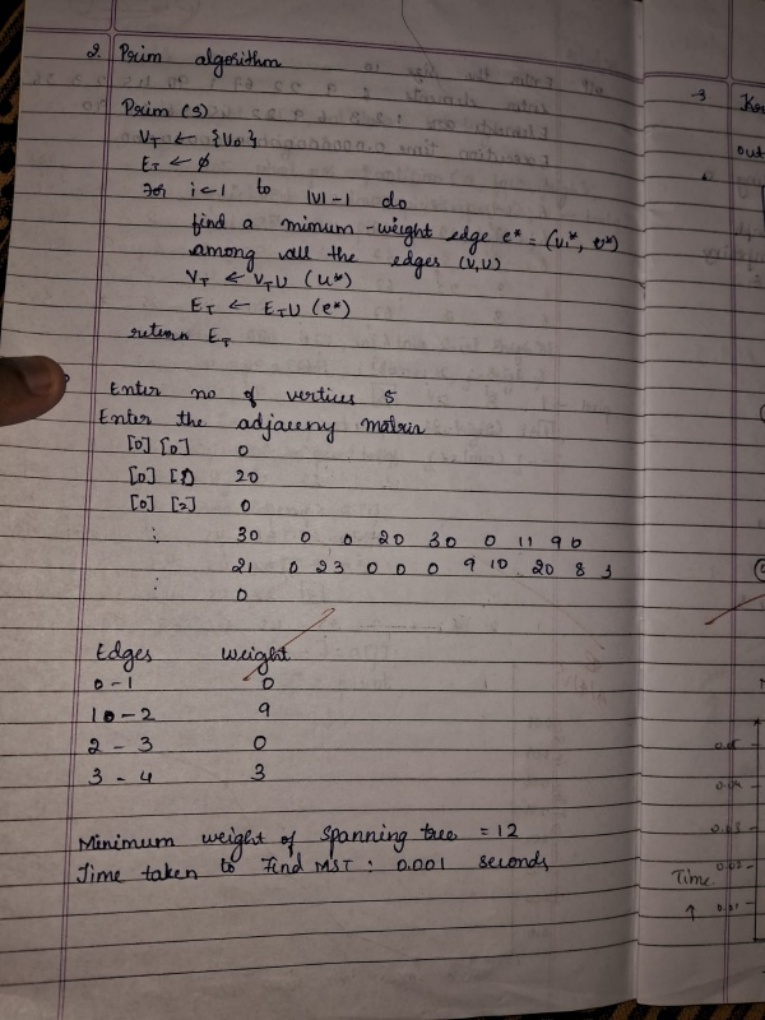 2. Prim algorithm
Prim (s)
V_T ← {V₀}
E_T ← ∅
For i←1 to |V|-1 do
find a mimum-weight edge e* = (v₁*, u*)
among all the edges (V,U)
V_T ← V_T U (u*)
E_T ← E_T U (e*)
return E_T
Enter no of vertices 5
Enter the adjaceny matrix
[0] [0] 0
[0] [1] 20
[0] [2] 0
: 30 0 0 20 30 0 11 90
21 0 23 0 0 0 9 10 20 8 3
: 0
Edges Weight
0-1 0
10-2 9
2-3 0
3-4 3
Minimum weight of Spanning tree = 12
Time taken to Find MST : 0.001 seconds
→
out
Time
↑ 0.01